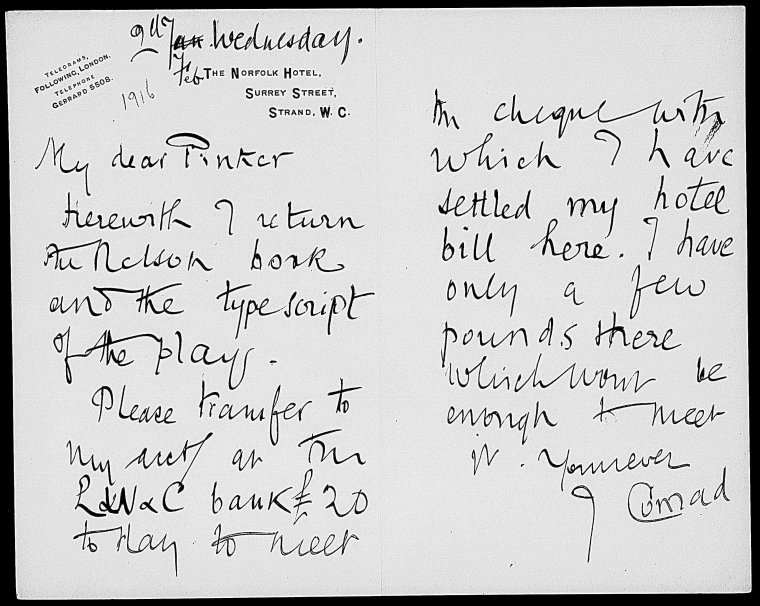 9th Jan Wednesday.
Feb
TELEGRAMS,
FOLLOWING, LONDON.
TELEPHONE
GERRARD 5508.
1916
THE NORFOLK HOTEL,
SURREY STREET,
STRAND, W. C.
My dear Pinker
Herewith I return
the Nelson book
and the type script
of the play.
Please transfer to
my acct at the
L&W&C bank £20
today to meet
the cheque with
which I have
settled my hotel
bill here. I have
only a few
pounds there
which wont be
enough to meet
it. Yours ever
J Conrad